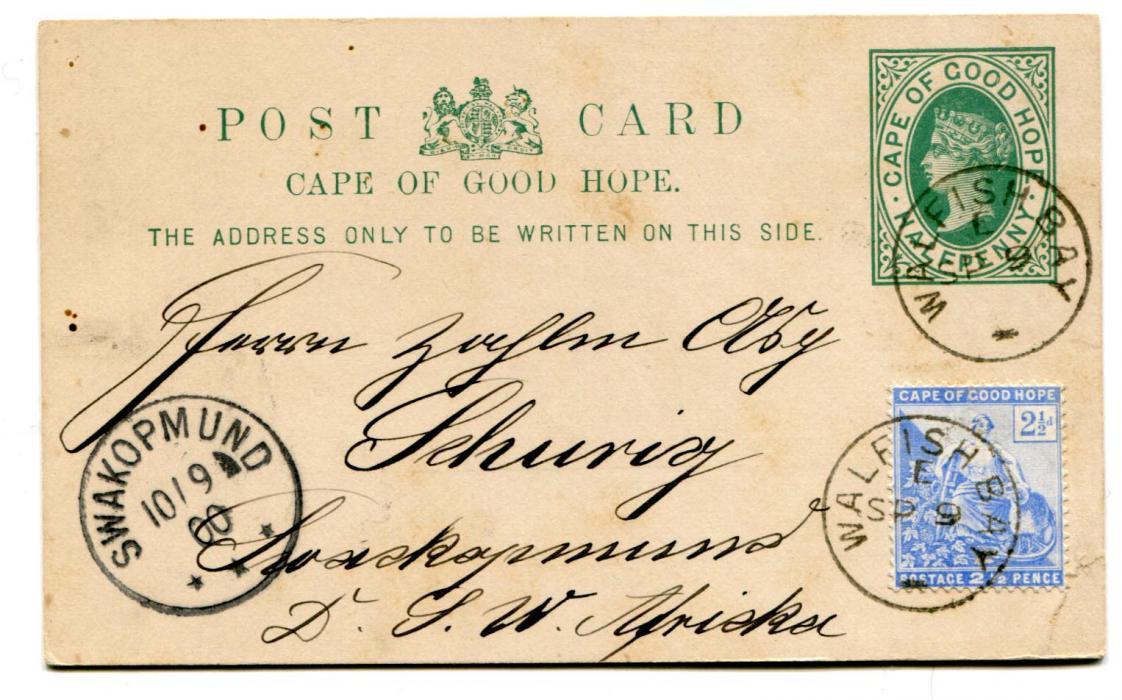 POST CARD
CAPE OF GOOD HOPE.
THE ADDRESS ONLY TO BE WRITTEN ON THIS SIDE.
CAPE OF GOOD HOPE
HALFPENNY
WALFISH BAY
E
SP 9
Herrn
Schurig
Swakopmund
D. S. W. Afrika
SWAKOPMUND
10/9
00
CAPE OF GOOD HOPE
2½d
POSTAGE 2½ PENCE
WALFISH BAY
E
SP 9